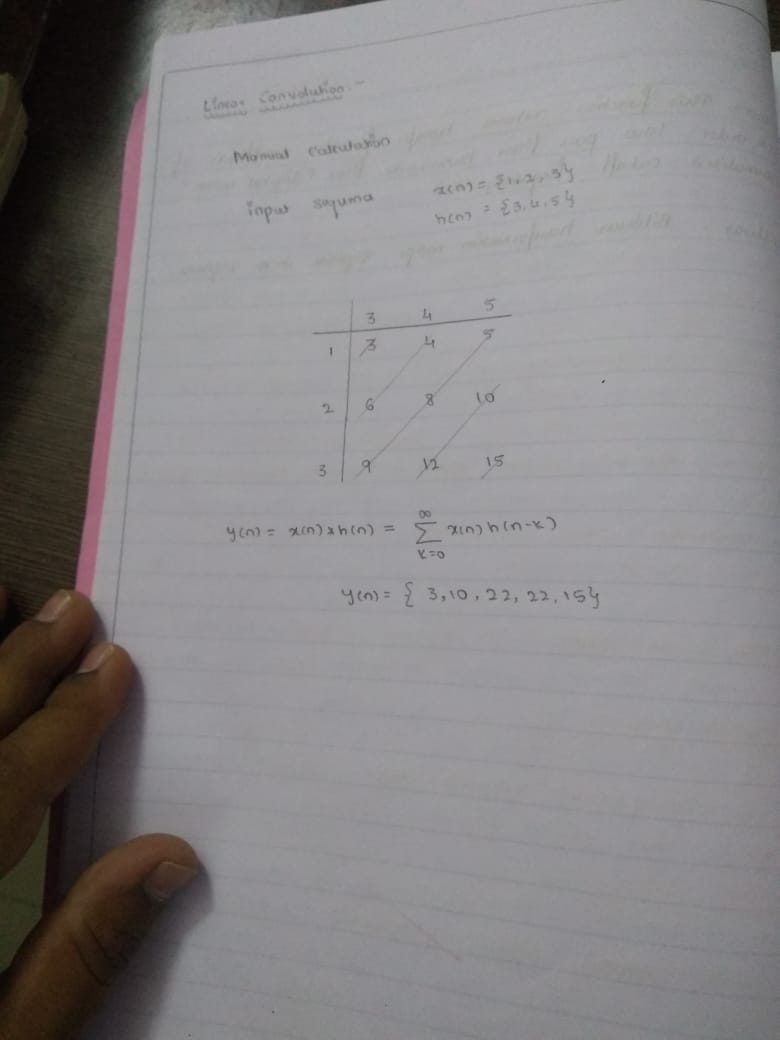 Linear Convolution :-
Manual Calculation
input sequma x(n) = {1, 2, 3}
h(n) = {3, 4, 5}
3 4 5
1 3 4 5
2 6 8 10
3 9 12 15
y(n) = x(n) * h(n) = ∞ Σ K=0 x(n) h(n-k)
y(n) = { 3, 10, 22, 22, 15}